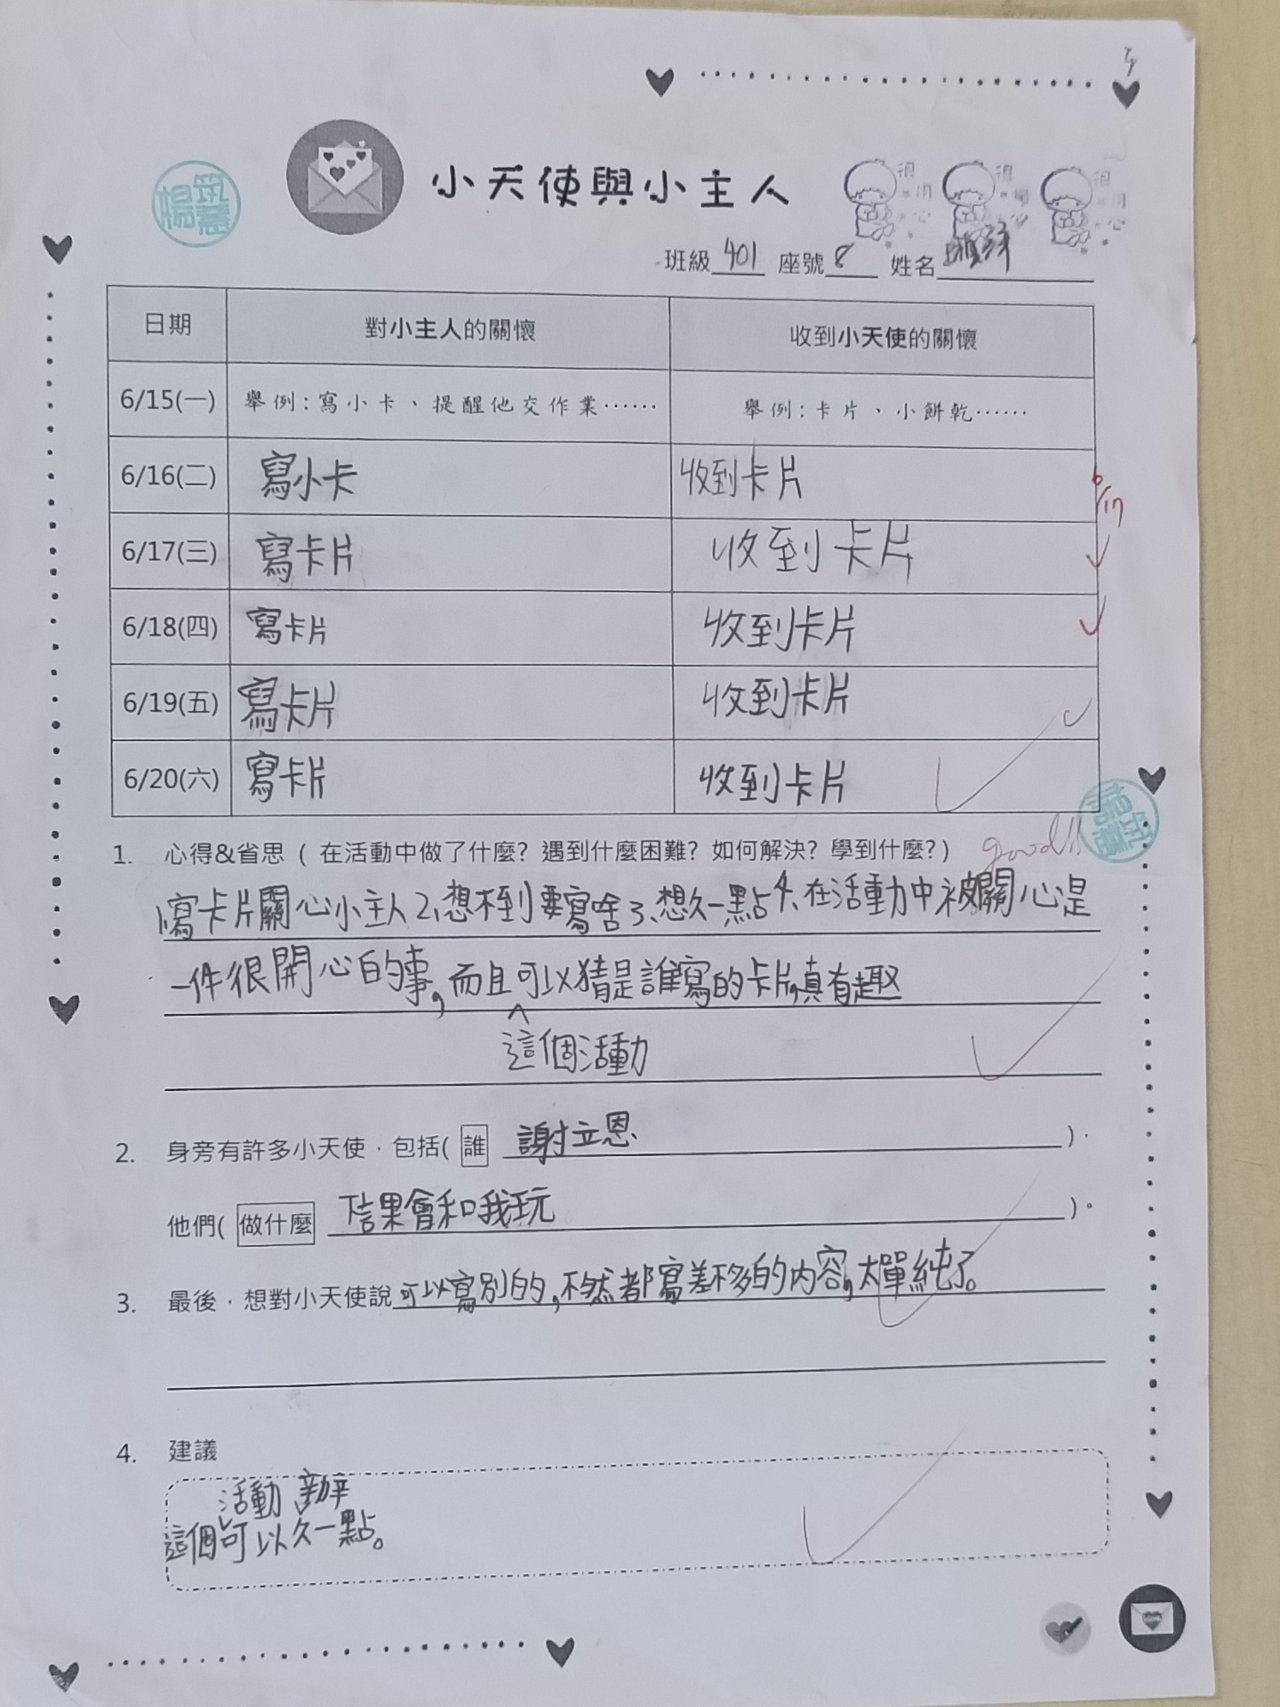 小天使與小主人
班級 401 座號 8 姓名
日期 對小主人的關懷 收到小天使的關懷
6/15(一) 舉例:寫小卡、提醒他交作業⋯⋯ 舉例:卡片、小餅乾⋯⋯
6/16(二) 寫小卡 收到卡片
6/17
6/17(三) 寫卡片 收到卡片
6/18(四) 寫卡片 收到卡片
6/19(五) 寫卡片 收到卡片
6/20(六) 寫卡片 收到卡片
1. 心得&省思 ( 在活動中做了什麼? 遇到什麼困難? 如何解決? 學到什麼? ) good!!
1、寫卡片關心小主人2、想不到要寫啥3、想久一點4、在活動中被關心是
一件很開心的事,而且可以猜是誰寫的卡片,真有趣
這個活動
2. 身旁有許多小天使,包括( 誰 謝立恩 ),
他們( 做什麼 下結果會和我玩 )。
3. 最後,想對小天使說 可以寫別的,不然都寫差不多的內容,太單純了。
4. 建議
活動 辦
這個可以久一點。